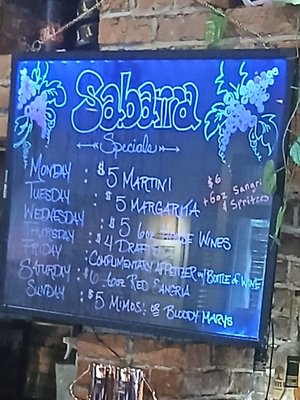 Sabarra
Specials
MONDAY : $5 MARTINI
TUESDAY : $5 MARGARITA
WEDNESDAY : $5 6oz HOUSE WINES
THURSDAY : $4 DRAFTS
FRIDAY : COMPLIMENTARY APPETIZER W/ BOTTLE OF WINE
SATURDAY : $6 6oz RED SANGRIA
SUNDAY : $5 MIMOS. OR BLOODY MARYS
$6
6oz Sangri
& Spritzes